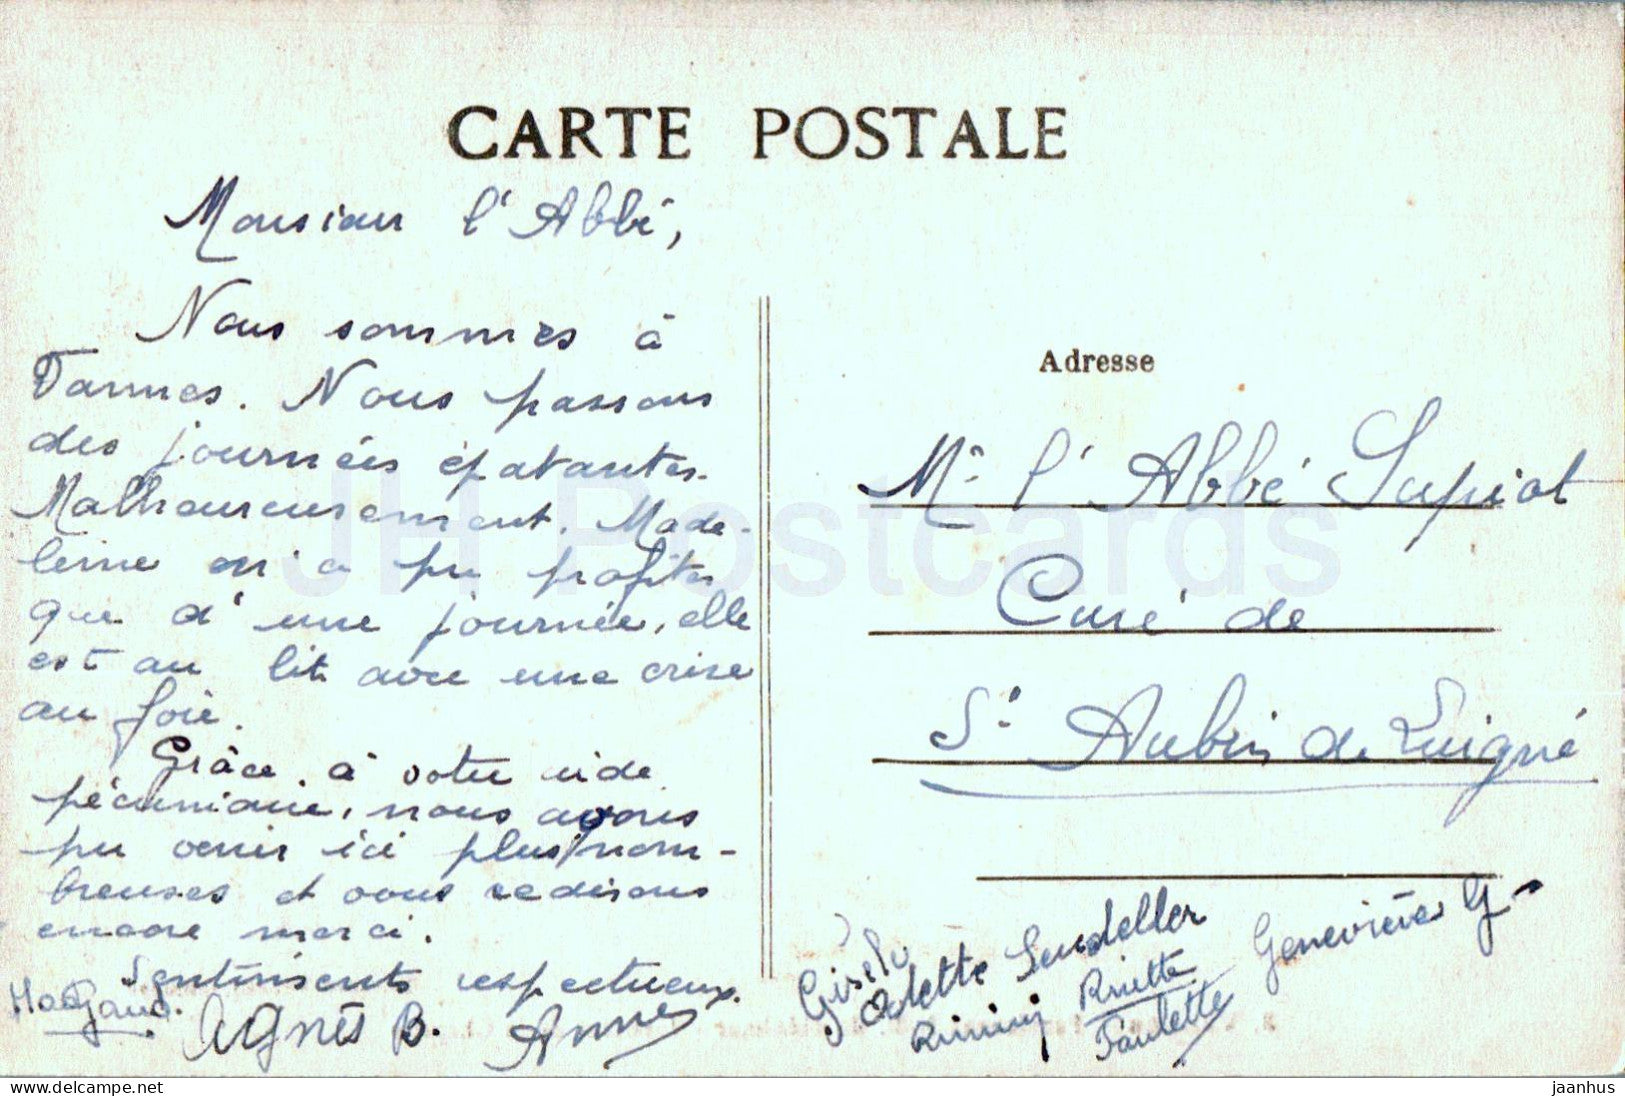 CARTE POSTALE
Monsieur l'Abbé,
Nous sommes à
Vannes. Nous passons
des journées épatantes.
Malheureusement, Made-
leine n'a pu profiter
que d'une journée, elle
est au lit avec une crise
au foie.
Grâce à votre aide
pécuniaire, nous avons
pu venir ici plus nom-
breuses et vous redisons
encore merci.
Sentiments respectueux.
Agnès B. Anne
Adresse
Mr l'Abbé Supiot
Curé de
St Aubin de Luigné
Gisèle
Odette
Geneviève G
Paulette
JH Postcards
delcampe.net
jaanhus